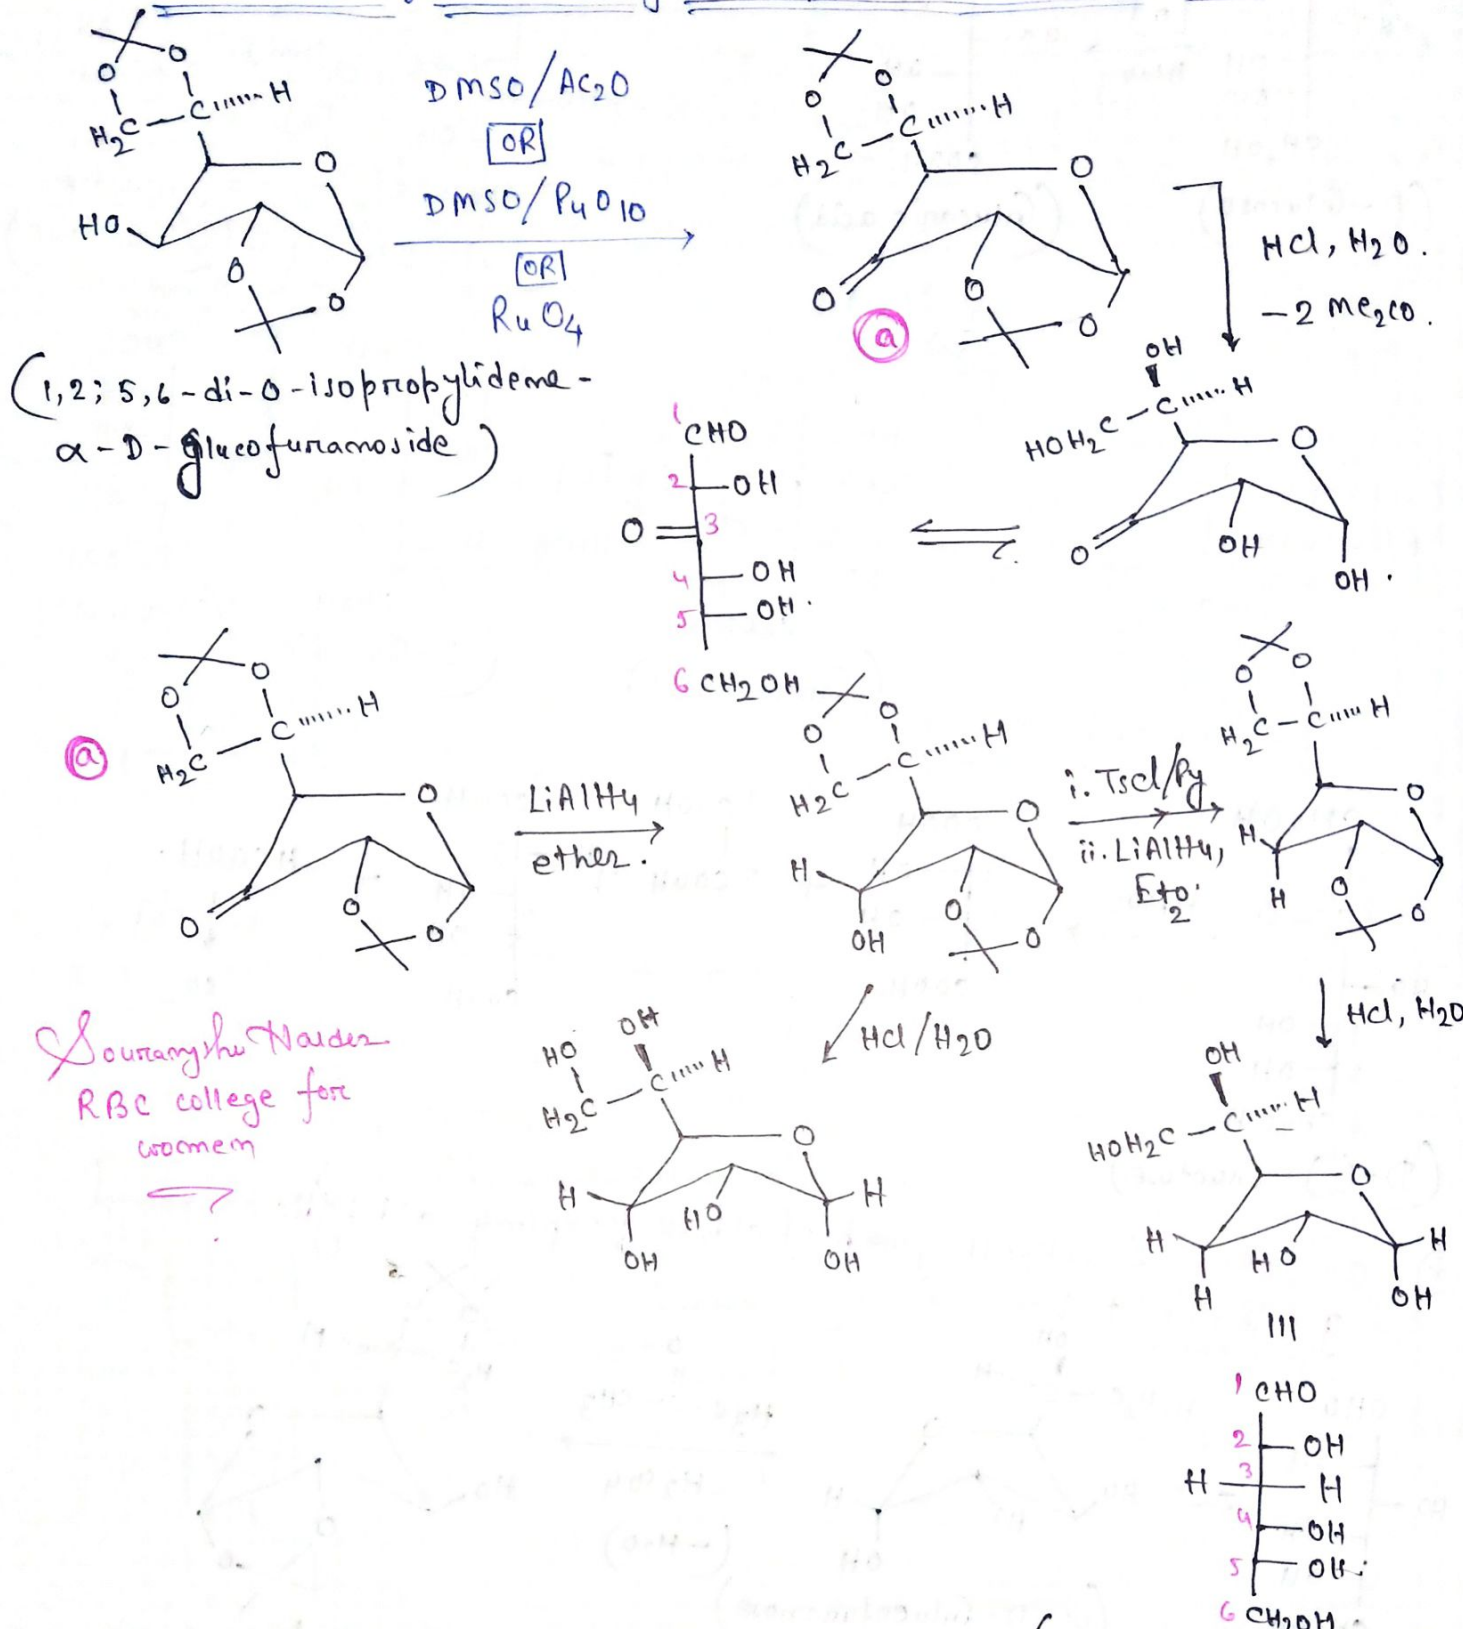 DMSO/Ac2O
OR
DMSO/P4O10
OR
RuO4
O
O
H2C
C
H
O
HO
O
O
(1,2; 5,6-di-O-isopropylidene-
α-D-glucofuranoside)
O
O
H2C
C
H
O
O
O
O
a
HCl, H2O.
-2 Me2CO.
OH
HOH2C
C
H
O
O
OH
OH.
1
CHO
2
OH
O
3
4
OH
5
OH.
6 CH2OH
a
O
O
H2C
C
H
O
O
O
O
LiAlH4
ether.
O
O
H2C
C
H
O
H
OH
O
O
i. TsCl/Py
ii. LiAlH4,
Et2O.
O
O
H2C
C
H
O
H
H
O
O
HCl/H2O
HCl, H2O
HO
OH
H2C
C
H
O
H
HO
H
OH
OH
OH
HOH2C
C
H
O
H
HO
H
H
OH
1 CHO
2
OH
H
3
H
4
OH
5
OH
6 CH2OH.
Souramshu Halder
RBC college for
women